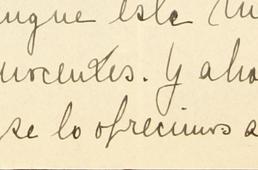 unque este
nocentes. Y aho
se lo ofrecimos a